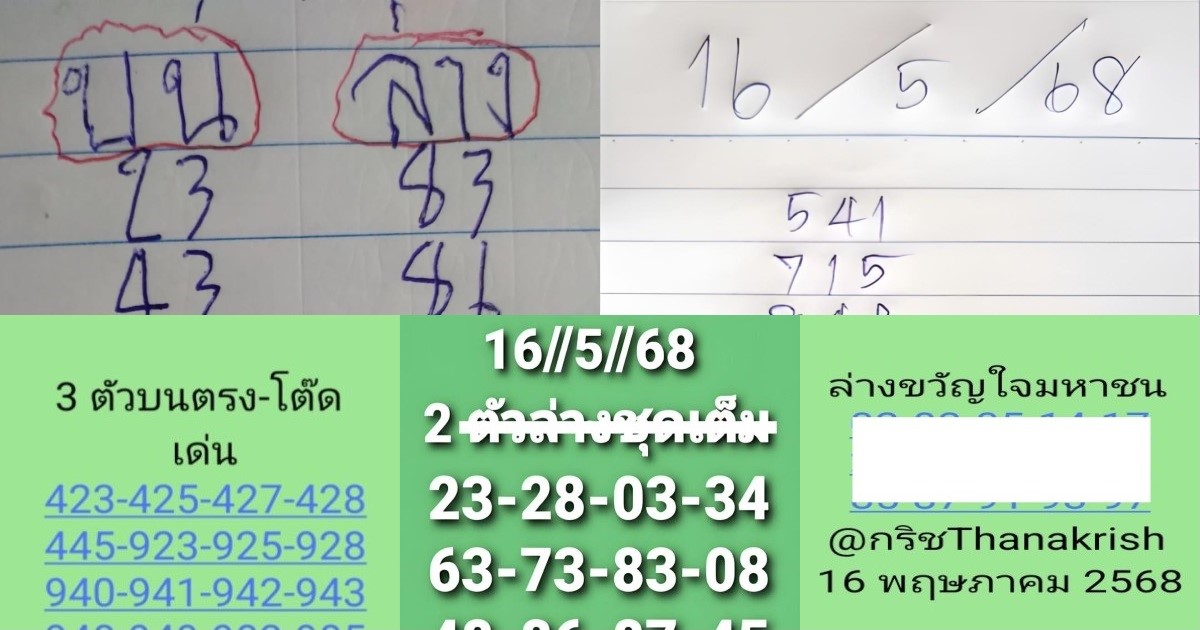 บน ล่าง
23 83
43 86
16/5/68
541
715
3 ตัวบนตรง-โต๊ด
เด่น
423-425-427-428
445-923-925-928
940-941-942-943
16//5//68
2 ตัวล่างชุดเต็ม
23-28-03-34
63-73-83-08
ล่างขวัญใจมหาชน
@กริชThanakrish
16 พฤษภาคม 2568